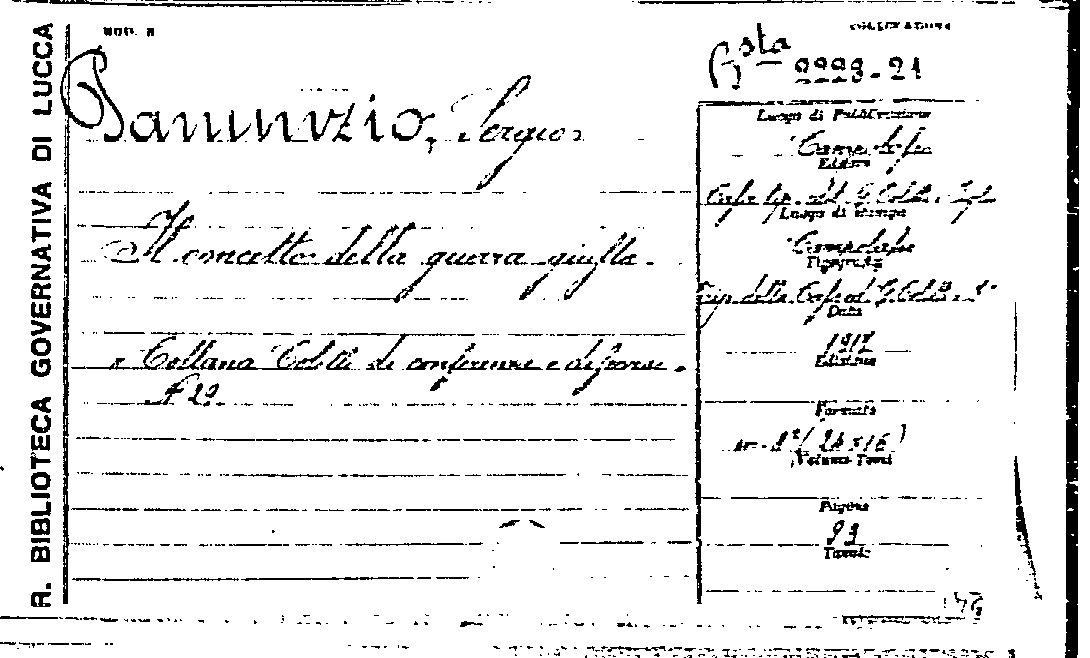 R. BIBLIOTECA GOVERNATIVA DI LUCCA
MOD. B
COLLOCAZIONE
Bsta 9993-21
Panunzio, Sergio
Il concetto della guerra giusta.
"Collana Colitti di conferenze e discorsi".
N 29.
Luogo di Pubblicazione
Campobasso
Editore
Casa tip. ed. G. Colitti e Figlio
Luogo di stampa
Campobasso
Tipografia
Tip. della Casa ed. G. Colitti e F.o
Data
1917
Edizione
Formato
in-8° (24x16)
Volumi-Tomi
Pagine
93
Tavole